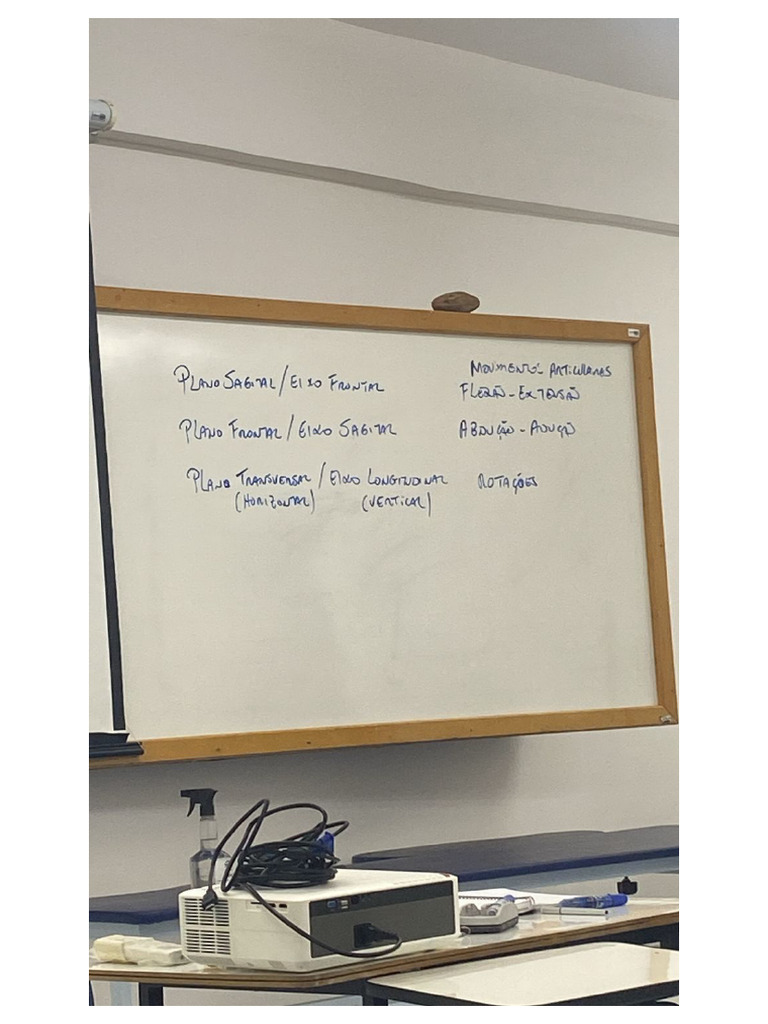 MOVIMENTOS ARTICULARES
PLANO SAGITAL / EIXO FRONTAL FLEXÃO - EXTENSÃO
PLANO FRONTAL / EIXO SAGITAL ABDUÇÃO - ADUÇÃO
PLANO TRANSVERSAL / EIXO LONGITUDINAL ROTAÇÕES
(HORIZONTAL) (VERTICAL)